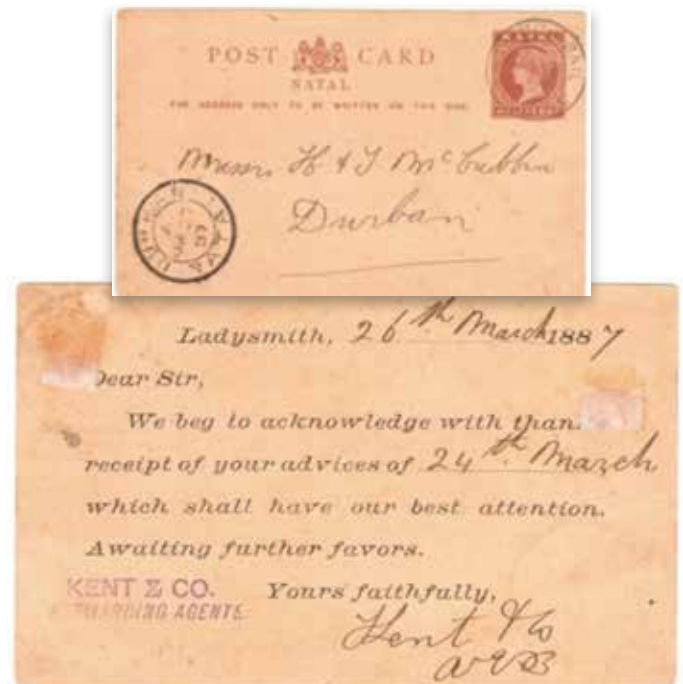 POST CARD
NATAL
THE ADDRESS ONLY TO BE WRITTEN ON THIS SIDE
NATAL
HALFPENNY
Messrs H & J McCubbin
Durban
Ladysmith, 26th March 1887
Dear Sir,
We beg to acknowledge with than
receipt of your advices of 24th March
which shall have our best attention.
Awaiting further favors.
KENT & CO.
FORWARDING AGENTS.
Yours faithfully,
Kent & Co